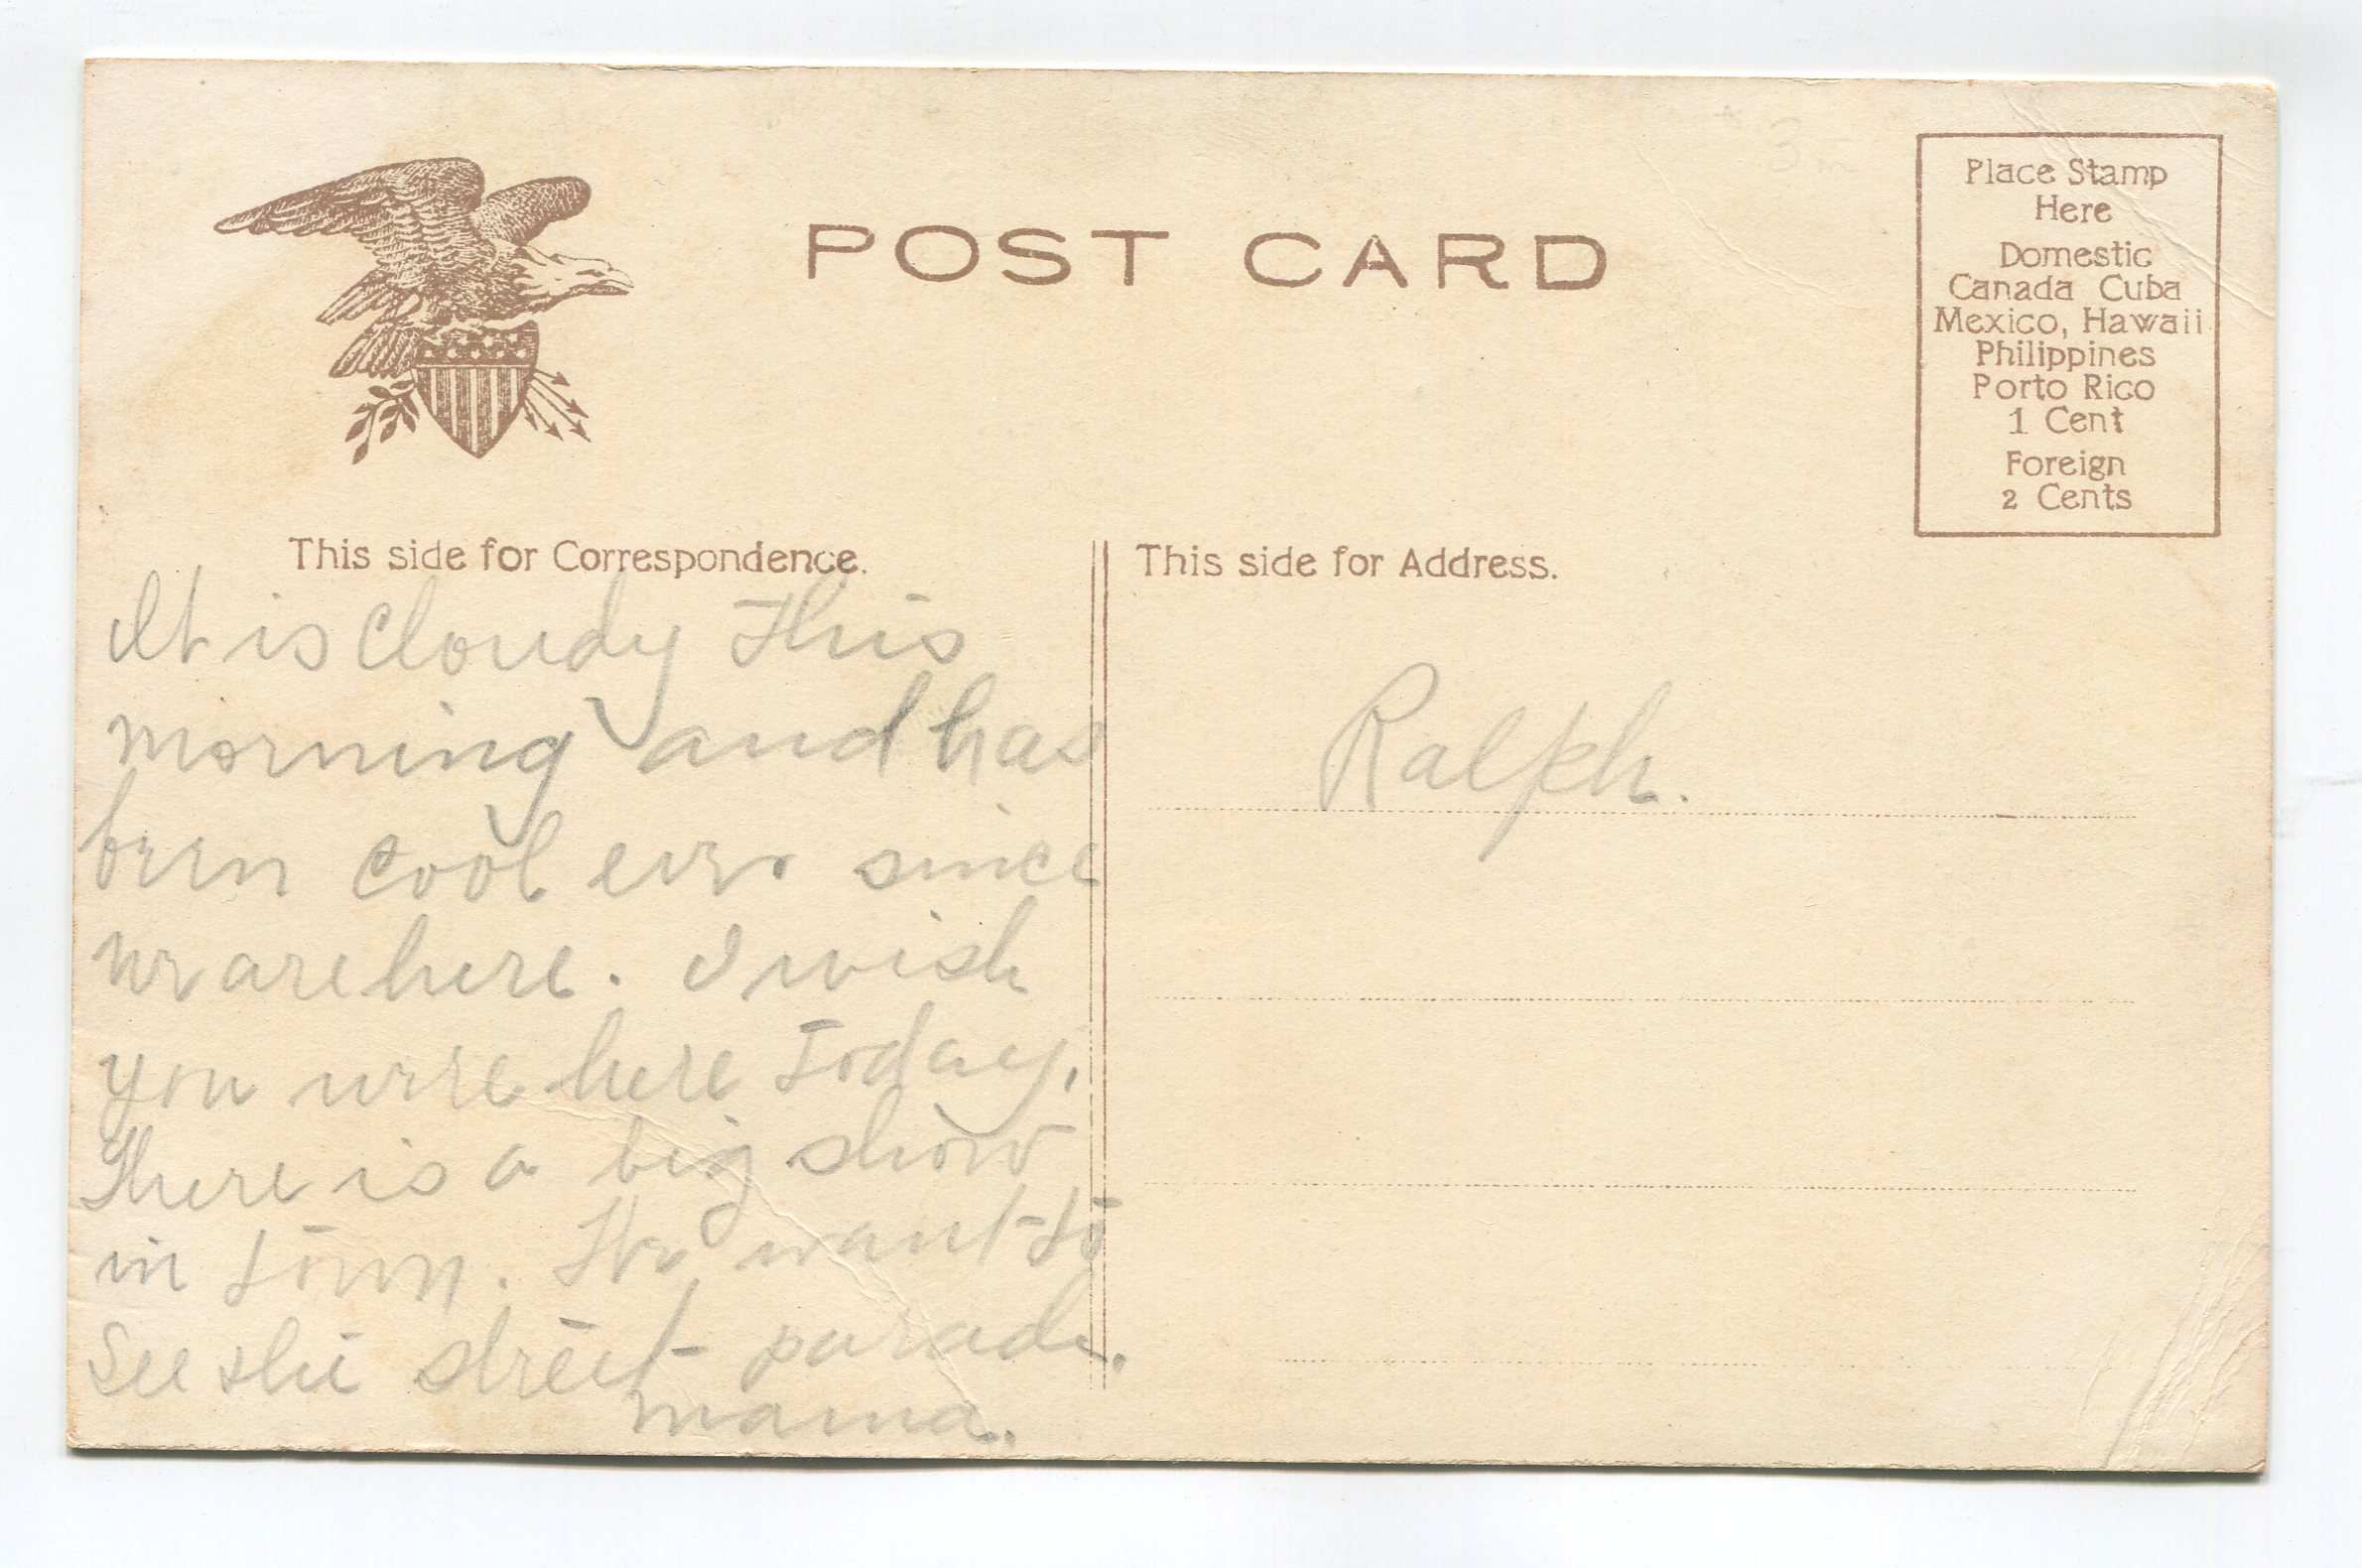 POST CARD
Place Stamp
Here
Domestic
Canada Cuba
Mexico, Hawaii
Philippines
Porto Rico
1 Cent
Foreign
2 Cents
This side for Correspondence.
It is cloudy this
morning and has
been cool ever since
we are here. I wish
you were here today.
There is a big show
in town. We want to
See the street parade.
mama.
This side for Address.
Ralph.